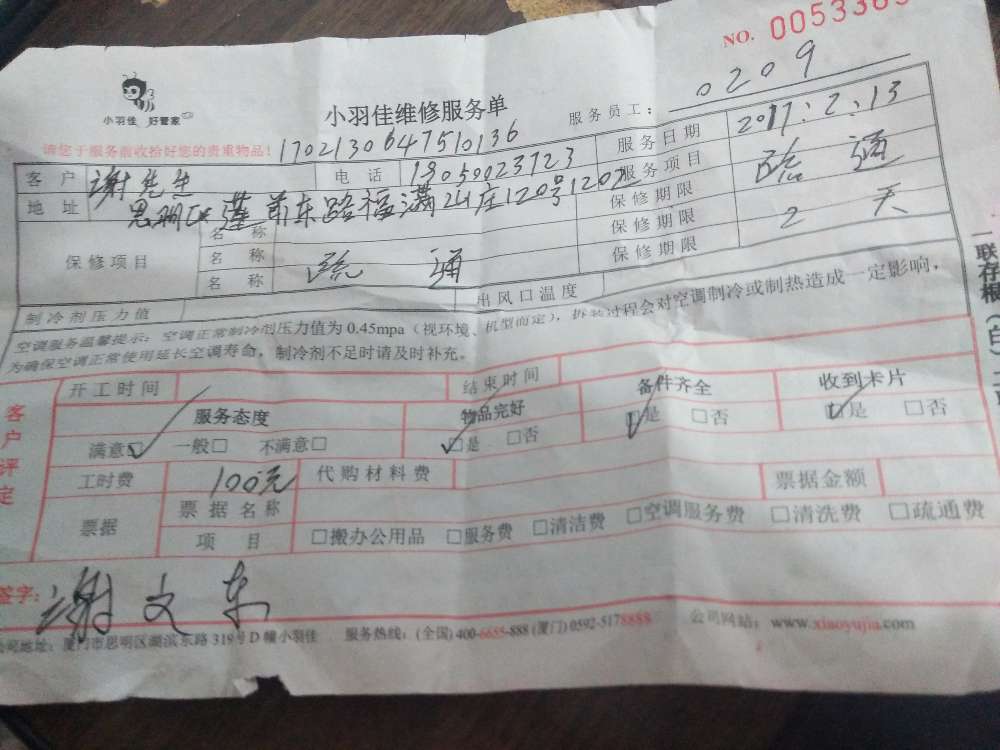 NO. 005336
小羽佳 好管家
小羽佳维修服务单
服务员工： 0209
请您于服务前收拾好您的贵重物品！ 1702130647510136
服务日期 2017.2.13
客户 谢先生 电话 13050023723
服务项目 疏通
地址 思明区莲前东路福满山庄120号1202
保修期限
保修项目 名称
保修期限 2天
名称 疏通
保修期限
名称
制冷剂压力值 出风口温度
空调服务温馨提示：空调正常制冷剂压力值为0.45mpa（视环境、机型而定），拆装过程会对空调制冷或制热造成一定影响，
为确保空调正常使用延长空调寿命，制冷剂不足时请及时补充。
一联存根（白）
客户评定
开工时间 结束时间
服务态度 物品完好 备件齐全 收到卡片
满意☑ 一般□ 不满意□ ☑是 □否 ☑是 □否 ☑是 □否
工时费 100元 代购材料费 票据金额
票据 票据名称
项目 □搬办公用品 □服务费 □清洁费 □空调服务费 □清洗费 □疏通费
签字： 谢文东
公司地址：厦门市思明区湖滨东路319号D幢小羽佳 服务热线：(全国) 400-6655-888 (厦门) 0592-5178888 公司网站：www.xiaoyujia.com